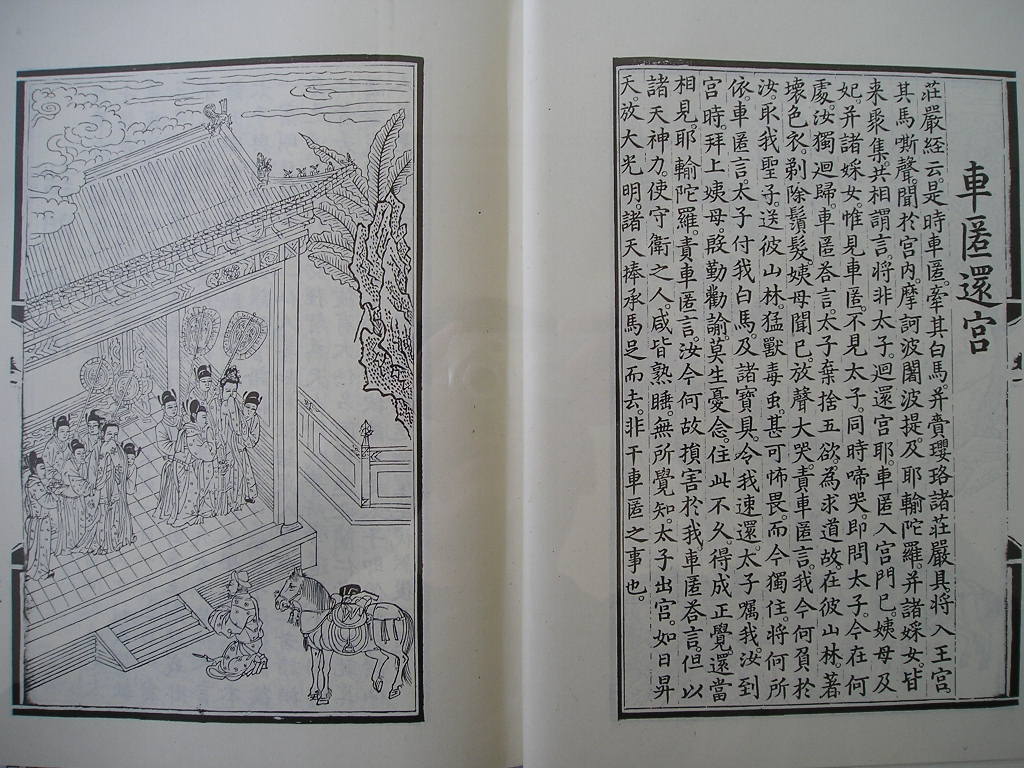 車匿還宮
莊嚴經云。是時車匿。牽其白馬。并賷瓔珞諸莊嚴具。將入王宮。
其馬嘶聲。聞於宮內。摩訶波闍波提。及耶輸陀羅。并諸婇女。皆
來聚集。共相謂言。將非太子。迴還宮耶。車匿入宮門已。姨母及
妃。并諸婇女。惟見車匿。不見太子。同時啼哭。即問太子。今在何
處。汝獨迴歸。車匿答言。太子棄捨五欲。為求道故。在彼山林。著
壞色衣。剃除鬚髮。姨母聞已。放聲大哭。責車匿言。我今何負於
汝。取我聖子。送彼山林。猛獸毒虫。甚可怖畏。而今獨住。將何所
依。車匿言。太子付我白馬。及諸寶具。令我速還。太子囑我。汝到
宮時。拜上姨母。慇勤勸諭。莫生憂念。住此不久。得成正覺。還當
相見。耶輸陀羅。責車匿言。汝今何故。損害於我。車匿答言。但以
諸天神力。使守衛之人。咸皆熟睡。無所覺知。太子出宮。如日昇
天。放大光明。諸天捧承馬足而去。非干車匿之事也。